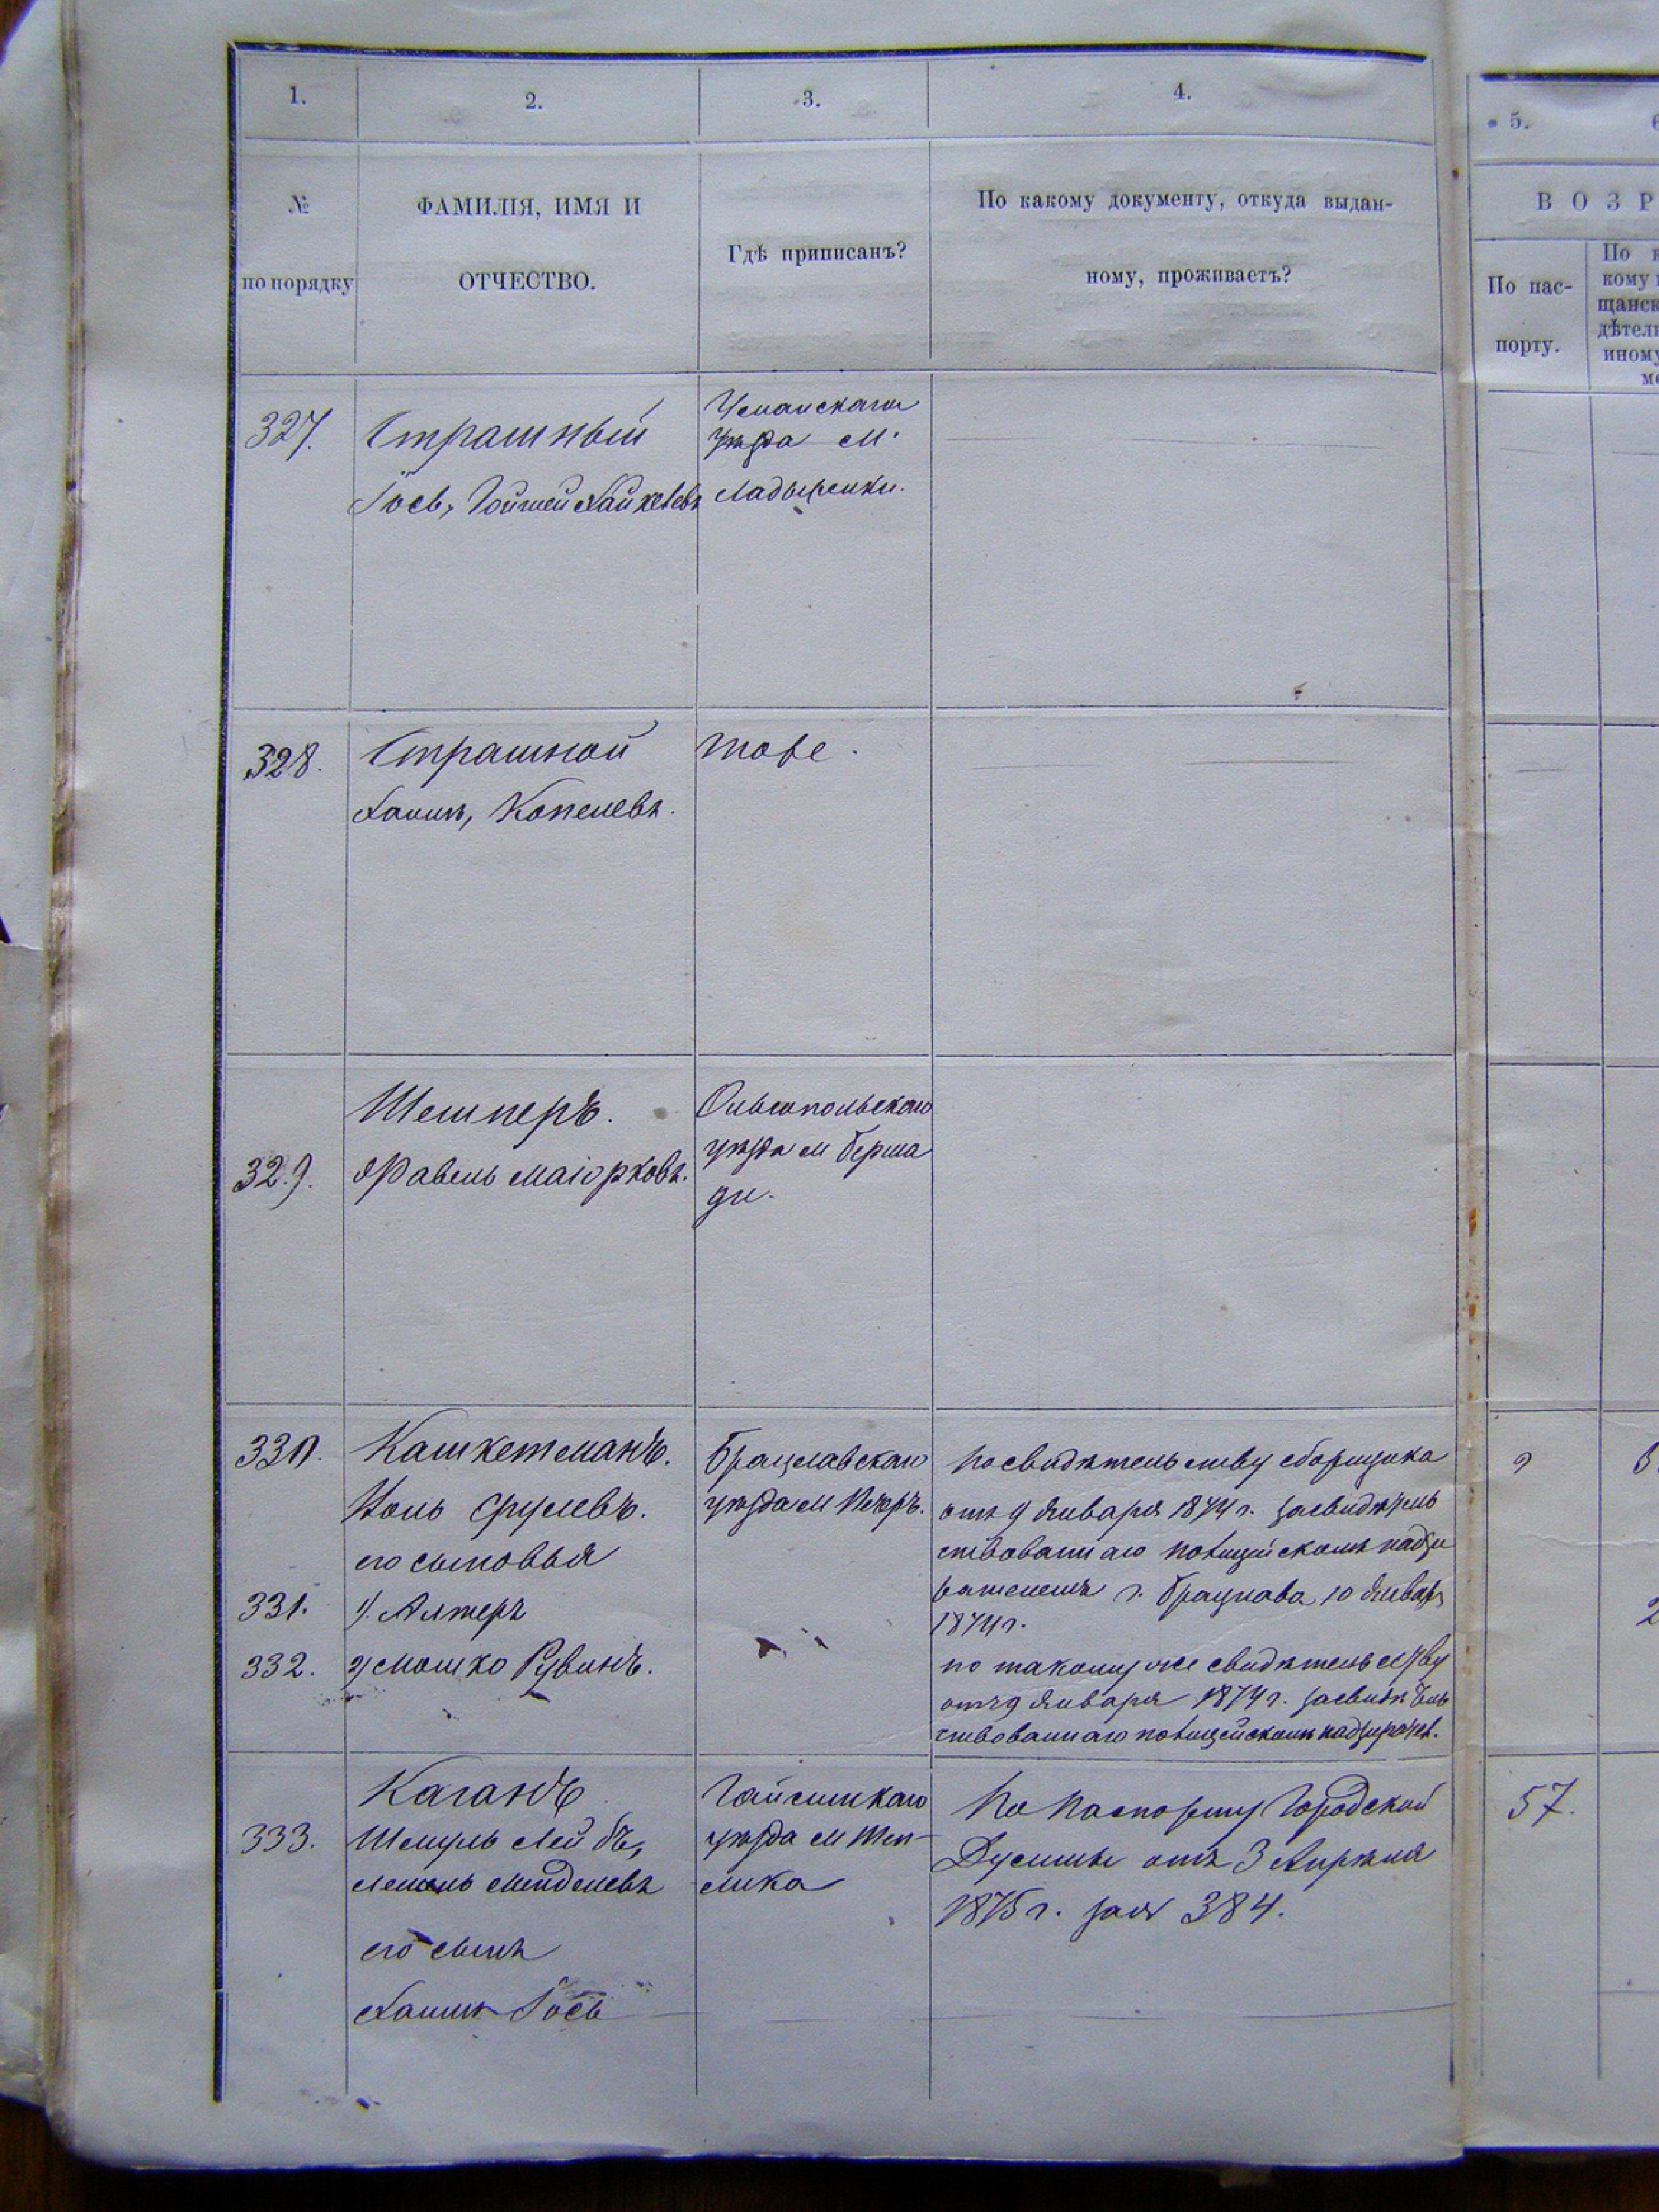 1.
2.
3.
4.
5.
№
по порядку
ФАМИЛІЯ, ИМЯ И
ОТЧЕСТВО.
Гдѣ приписанъ?
По какому документу, откуда выдан-
ному, проживаетъ?
ВОЗР
По пас-
порту.
По к
кому
щанск
дѣтел
иному
327.
Страшный
Іось,
Уманскаго
уѣзда М.
Ладыженки.
328.
Страшной
Хаимъ, Копелевъ.
тоже.
329.
Шемперъ.
Маіорковъ.
Ольгопольскаго
уѣзда М Берша
ди.
330.
Кашкетманъ.
Срулевъ.
его сыновья
331. 1) Алтеръ
332. 2) Мошко Рувинъ.
Брацлавскаго
уѣзда М Печеръ.
По свидѣтельству сборщика
отъ 9 Января 1874 г. засвидѣтель
ствованнаго полицейскимъ надзи
рателемъ г. Брацлава 10 Января
1874 г.
по такому же свидѣтельству
отъ 9 Января 1874 г. засвидѣтель
ствованнаго полицейскимъ надзирател.
333.
Каганъ
Шмуль Лейбъ,
Менделевъ
его сынъ
Хаимъ Іось
Гайсинскаго
уѣзда М Теп-
лика
По паспорту Городской
Думины отъ 3 Апрѣля
1875 г. за № 384.
57.